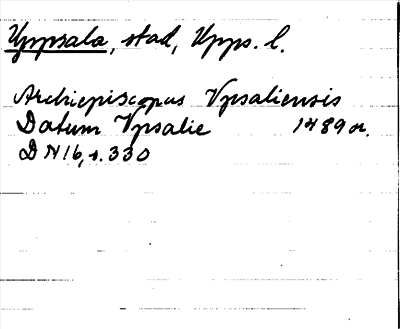 Uppsala, stad, Upps. l.
Archiepiscopus Vpsaliensis
Datum Vpsalie 1489 or.
DN 16, s. 330